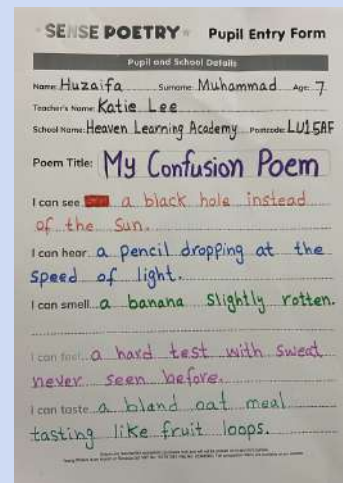 SENSE POETRY Pupil Entry Form
Pupil and School Details
Name: Huzaifa Surname: Muhammad Age: 7
Teacher's Name: Katie Lee
School Name: Heaven Learning Academy Postcode: LU15AF
Poem Title: My Confusion Poem
I can see a black hole instead
of the Sun.
I can hear a pencil dropping at the
speed of light.
I can smell a banana slightly rotten.
I can feel a hard test with sweat
never seen before.
I can taste a bland oat meal
tasting like fruit loops.